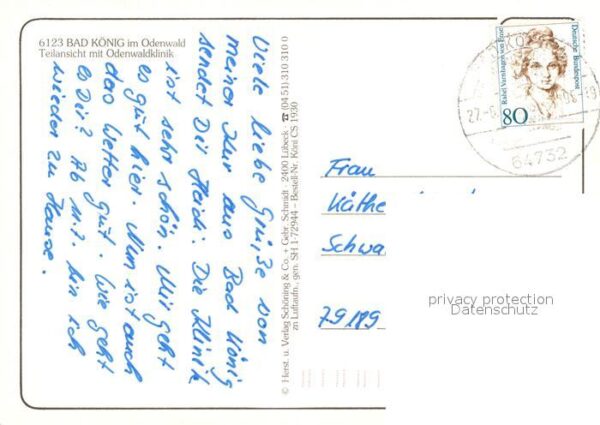 6123 BAD KÖNIG im Odenwald
Teilansicht mit Odenwaldklinik
Viele liebe Grüße von
meiner Kur aus Bad König
sendet Dir Heidi. Die Klinik
ist sehr schön. Mir geht
es gut hier. Nun ist auch
das Wetter gut. Wie geht
es Dir? Ab 11.7. bin ich
wieder zu Hause.
© Herst. u. Verlag Schöning & Co. + Gebr. Schmidt · 2400 Lübeck · ☎ (04 51) 310 310 0
zu Luftaufn., gen. SH 1-72944 – Bestell-Nr. Köni CS 1930
Rahel Varnhagen von Ense
Deutsche Bundespost
80
64732
Frau
Käthe
Schwa
79189
privacy protection
Datenschutz